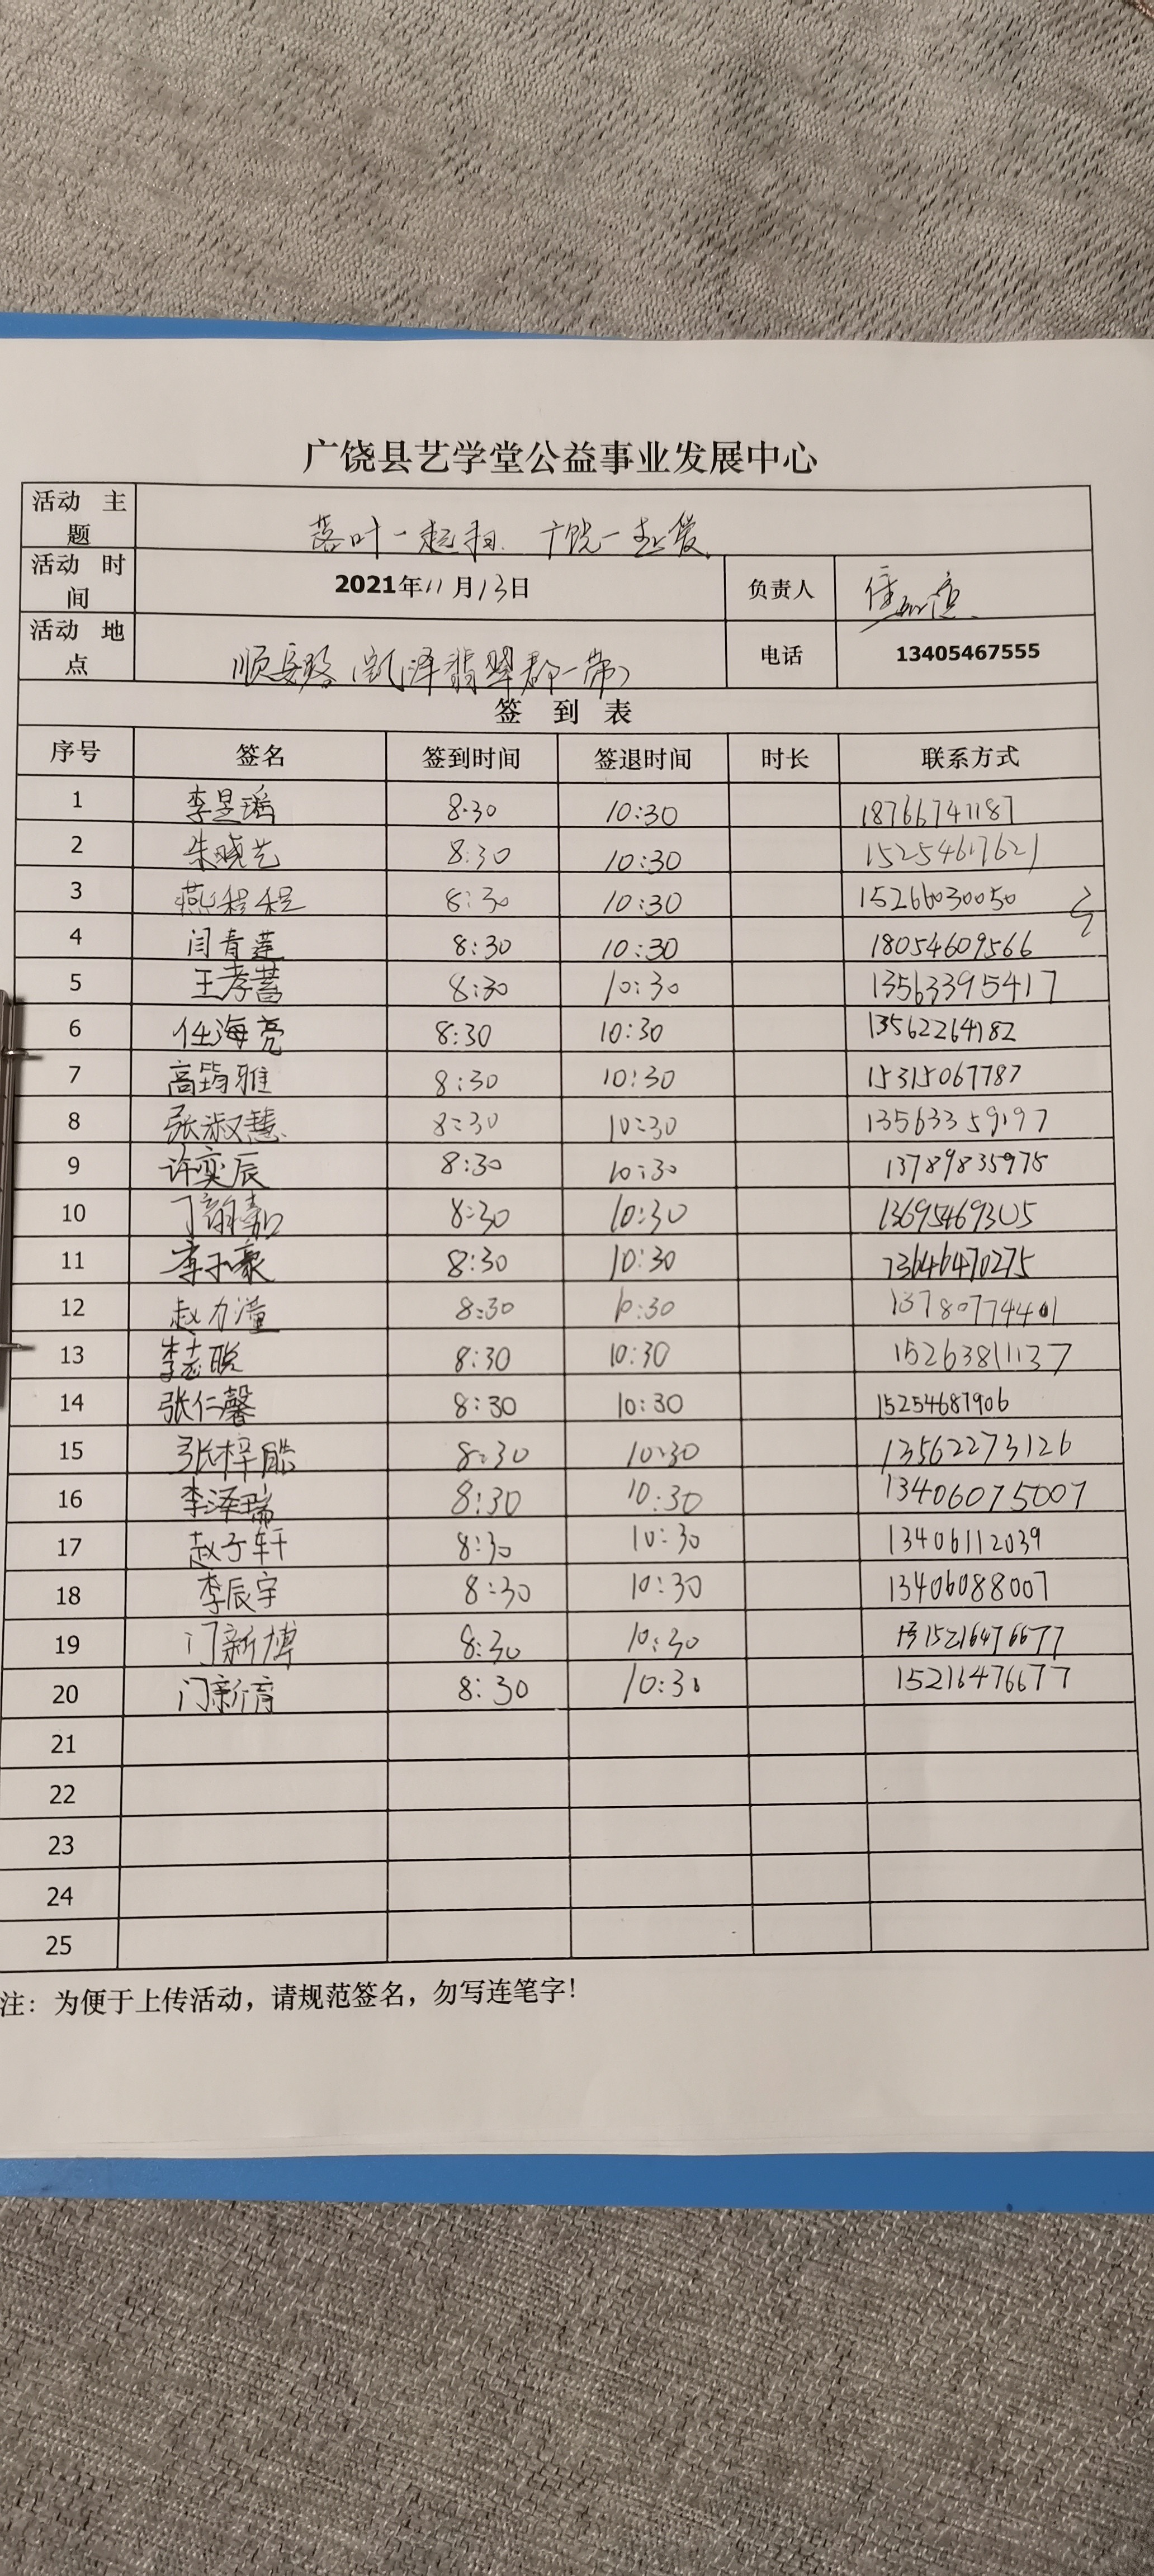 广饶县艺学堂公益事业发展中心
活动 主题 落叶一起扫 广饶一起爱
活动 时间 2021年11月13日 负责人
活动 地点 顺安路(凯泽翡翠郡一带) 电话 13405467555
签 到 表
序号 签名 签到时间 签退时间 时长 联系方式
1 李昱瑶 8:30 10:30 18766741187
2 朱晓艺 8:30 10:30 15254617621
3 燕程程 8:30 10:30 15266030050
4 闫青莲 8:30 10:30 18054609566
5 王孝蓄 8:30 10:30 13563395417
6 任海亮 8:30 10:30 13562264182
7 高筠雅 8:30 10:30 15315067787
8 张淑慧 8:30 10:30 13563359197
9 许奕辰 8:30 10:30 13789835975
10 丁韶嘉 8:30 10:30 13695469305
11 李子豪 8:30 10:30 13646470275
12 赵力潼 8:30 10:30 13780774401
13 李志聪 8:30 10:30 15263811137
14 张仁馨 8:30 10:30 15254687906
15 张梓皓 8:30 10:30 13562273126
16 李泽瑞 8:30 10:30 13406075007
17 赵子轩 8:30 10:30 13406112039
18 李辰宇 8:30 10:30 13406088007
19 门新博 8:30 10:30 15216476677
20 门新育 8:30 10:30 15216476677
21
22
23
24
25
注：为便于上传活动，请规范签名，勿写连笔字！